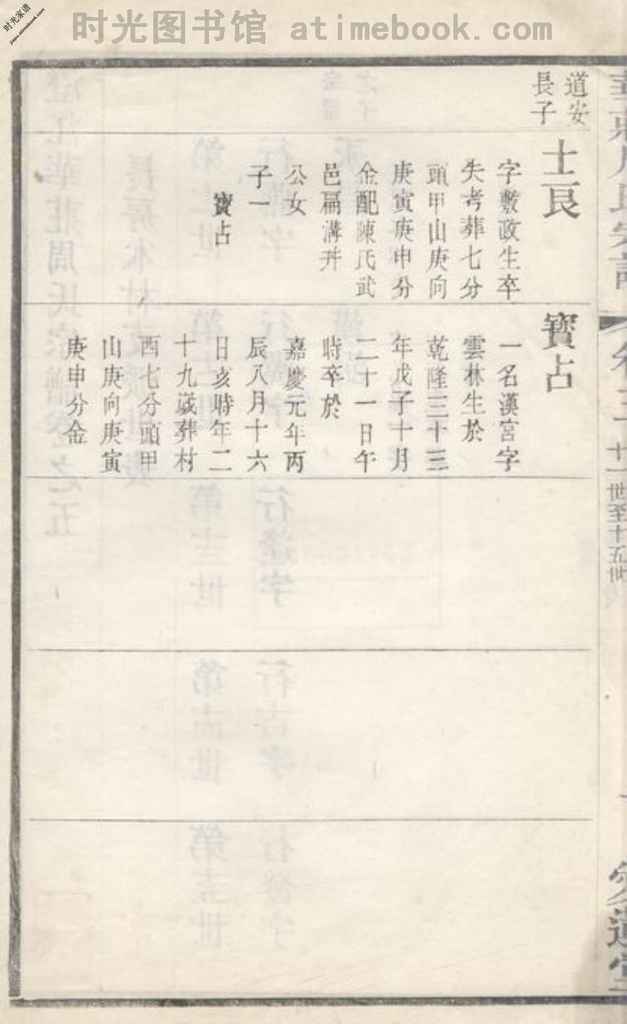 时光图书馆 atimebook.com
时光家谱
道安
長子
士良
字敷政生卒
失考葬七分
頭甲山庚向
庚寅庚申分
金配陳氏武
邑扁溝井
公女
子一
寳占
寳占
一名漢宮字
雲林生於
乾隆三十三
年戊子十月
二十一日午
時卒於
嘉慶元年丙
辰八月十六
日亥時年二
十九歲葬村
西七分頭甲
山庚向庚寅
庚申分金
卷三
十一世至十五世
愛蓮堂